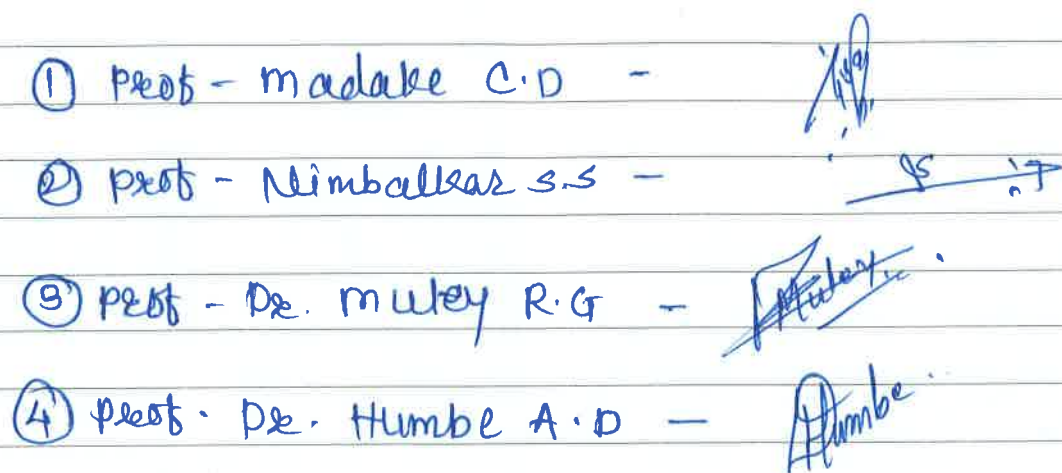 ① Prof - Madake C.D -
② Prof - Nimbalkar S.S -
③ Prof - Dr. Muley R.G - Muley
④ Prof. Dr. Humbe A.D - Humbe